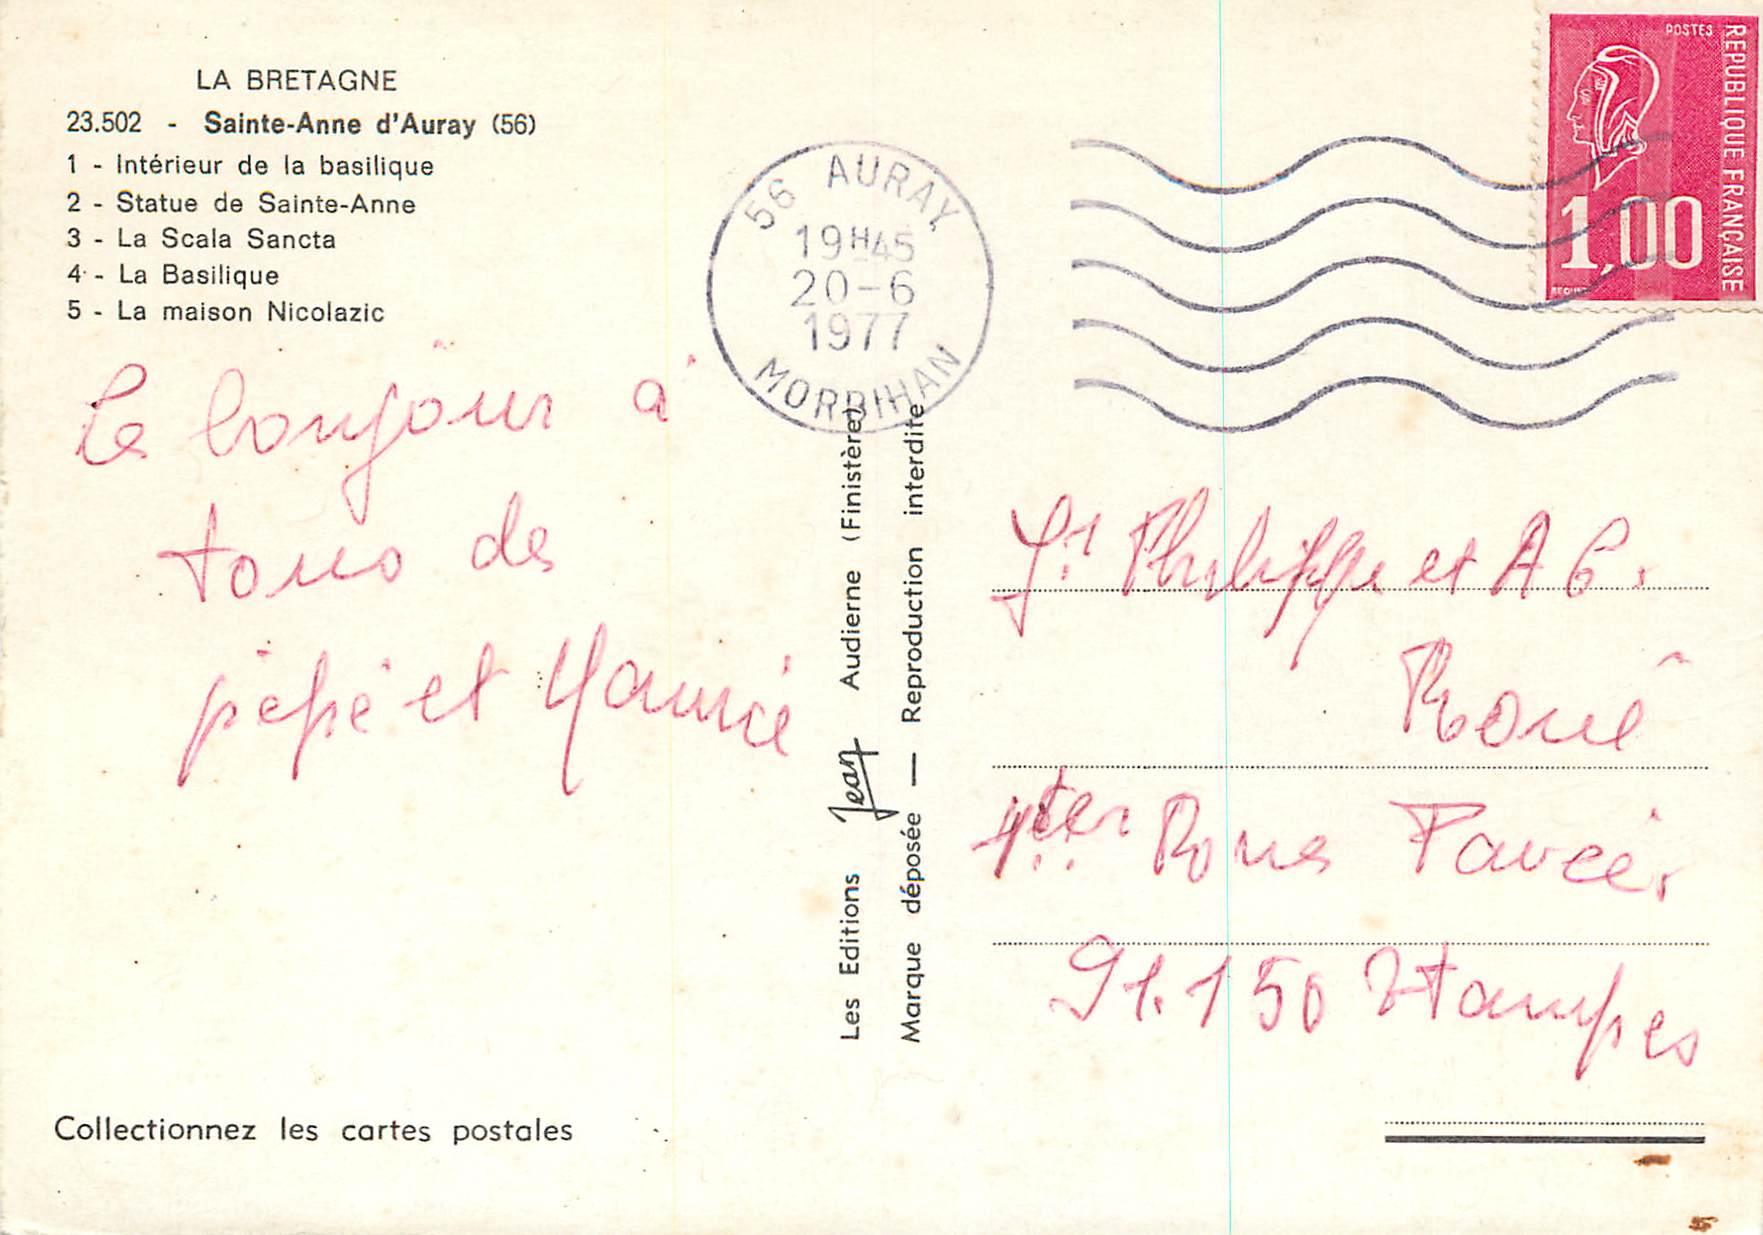 LA BRETAGNE
23.502 - Sainte-Anne d'Auray (56)
1 - Intérieur de la basilique
2 - Statue de Sainte-Anne
3 - La Scala Sancta
4 - La Basilique
5 - La maison Nicolazic
Le bonjour à
tous de
pépé et
Collectionnez les cartes postales
56 AURAY
19H45
20-6
1977
MORBIHAN
Les Editions Jean Audierne (Finistère)
Marque déposée — Reproduction interdite
POSTES
REPUBLIQUE FRANÇAISE
1,00
Philippe et A
4ter
91.150 Etampes